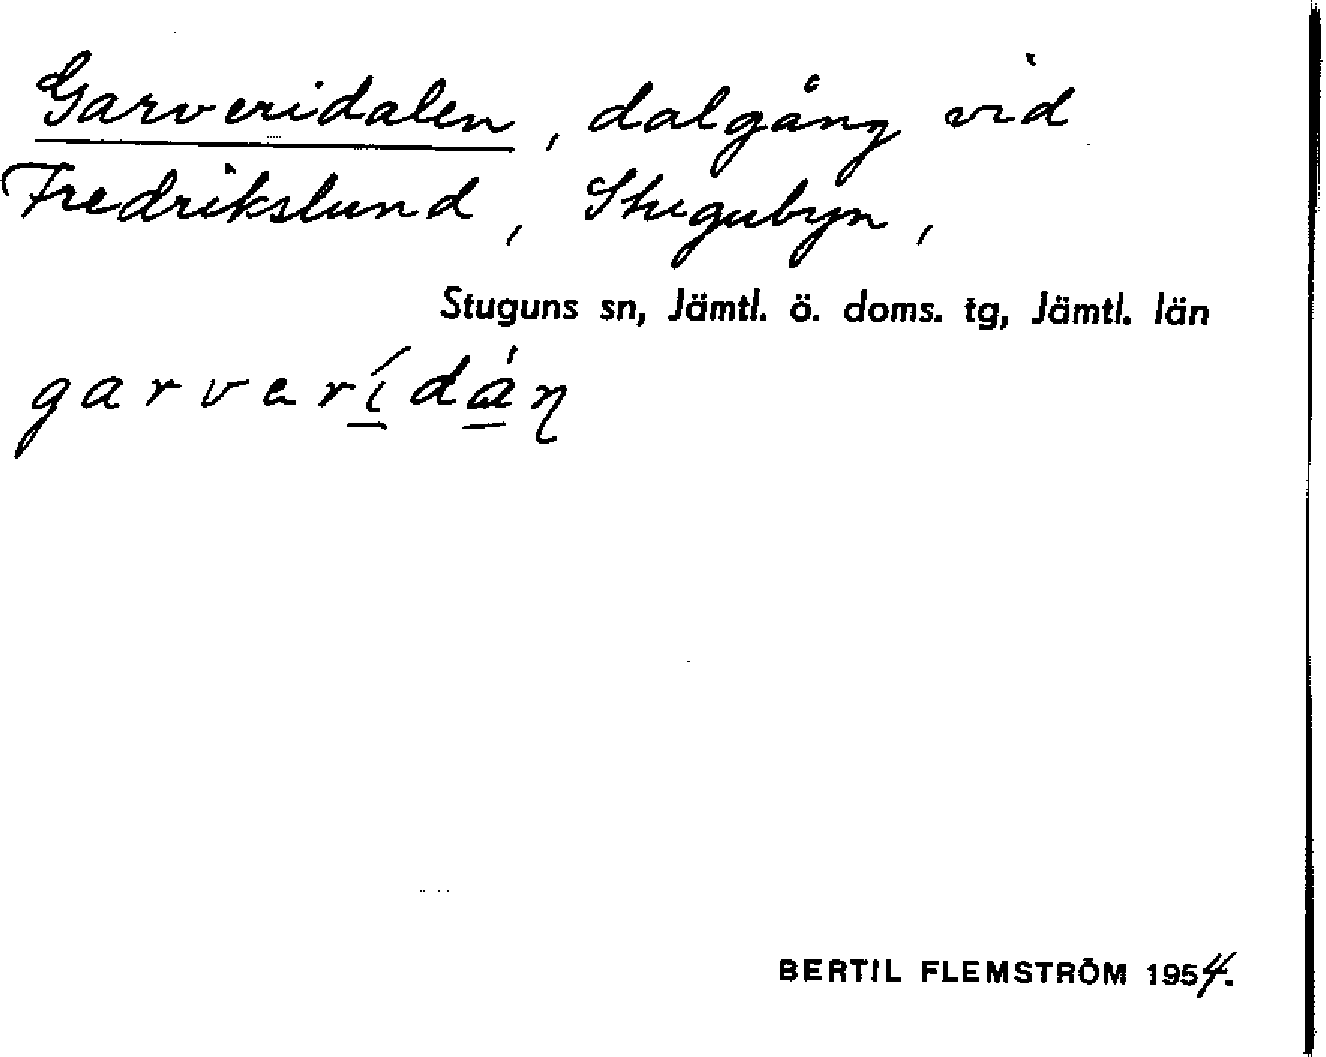 Garveridalen, dalgång vid
Fredrikslund, Stugubyn,
Stuguns sn, Jämtl. ö. doms. tg, Jämtl. län
garverí̱dá̱ŋ
BERTIL FLEMSTRÖM 1954.